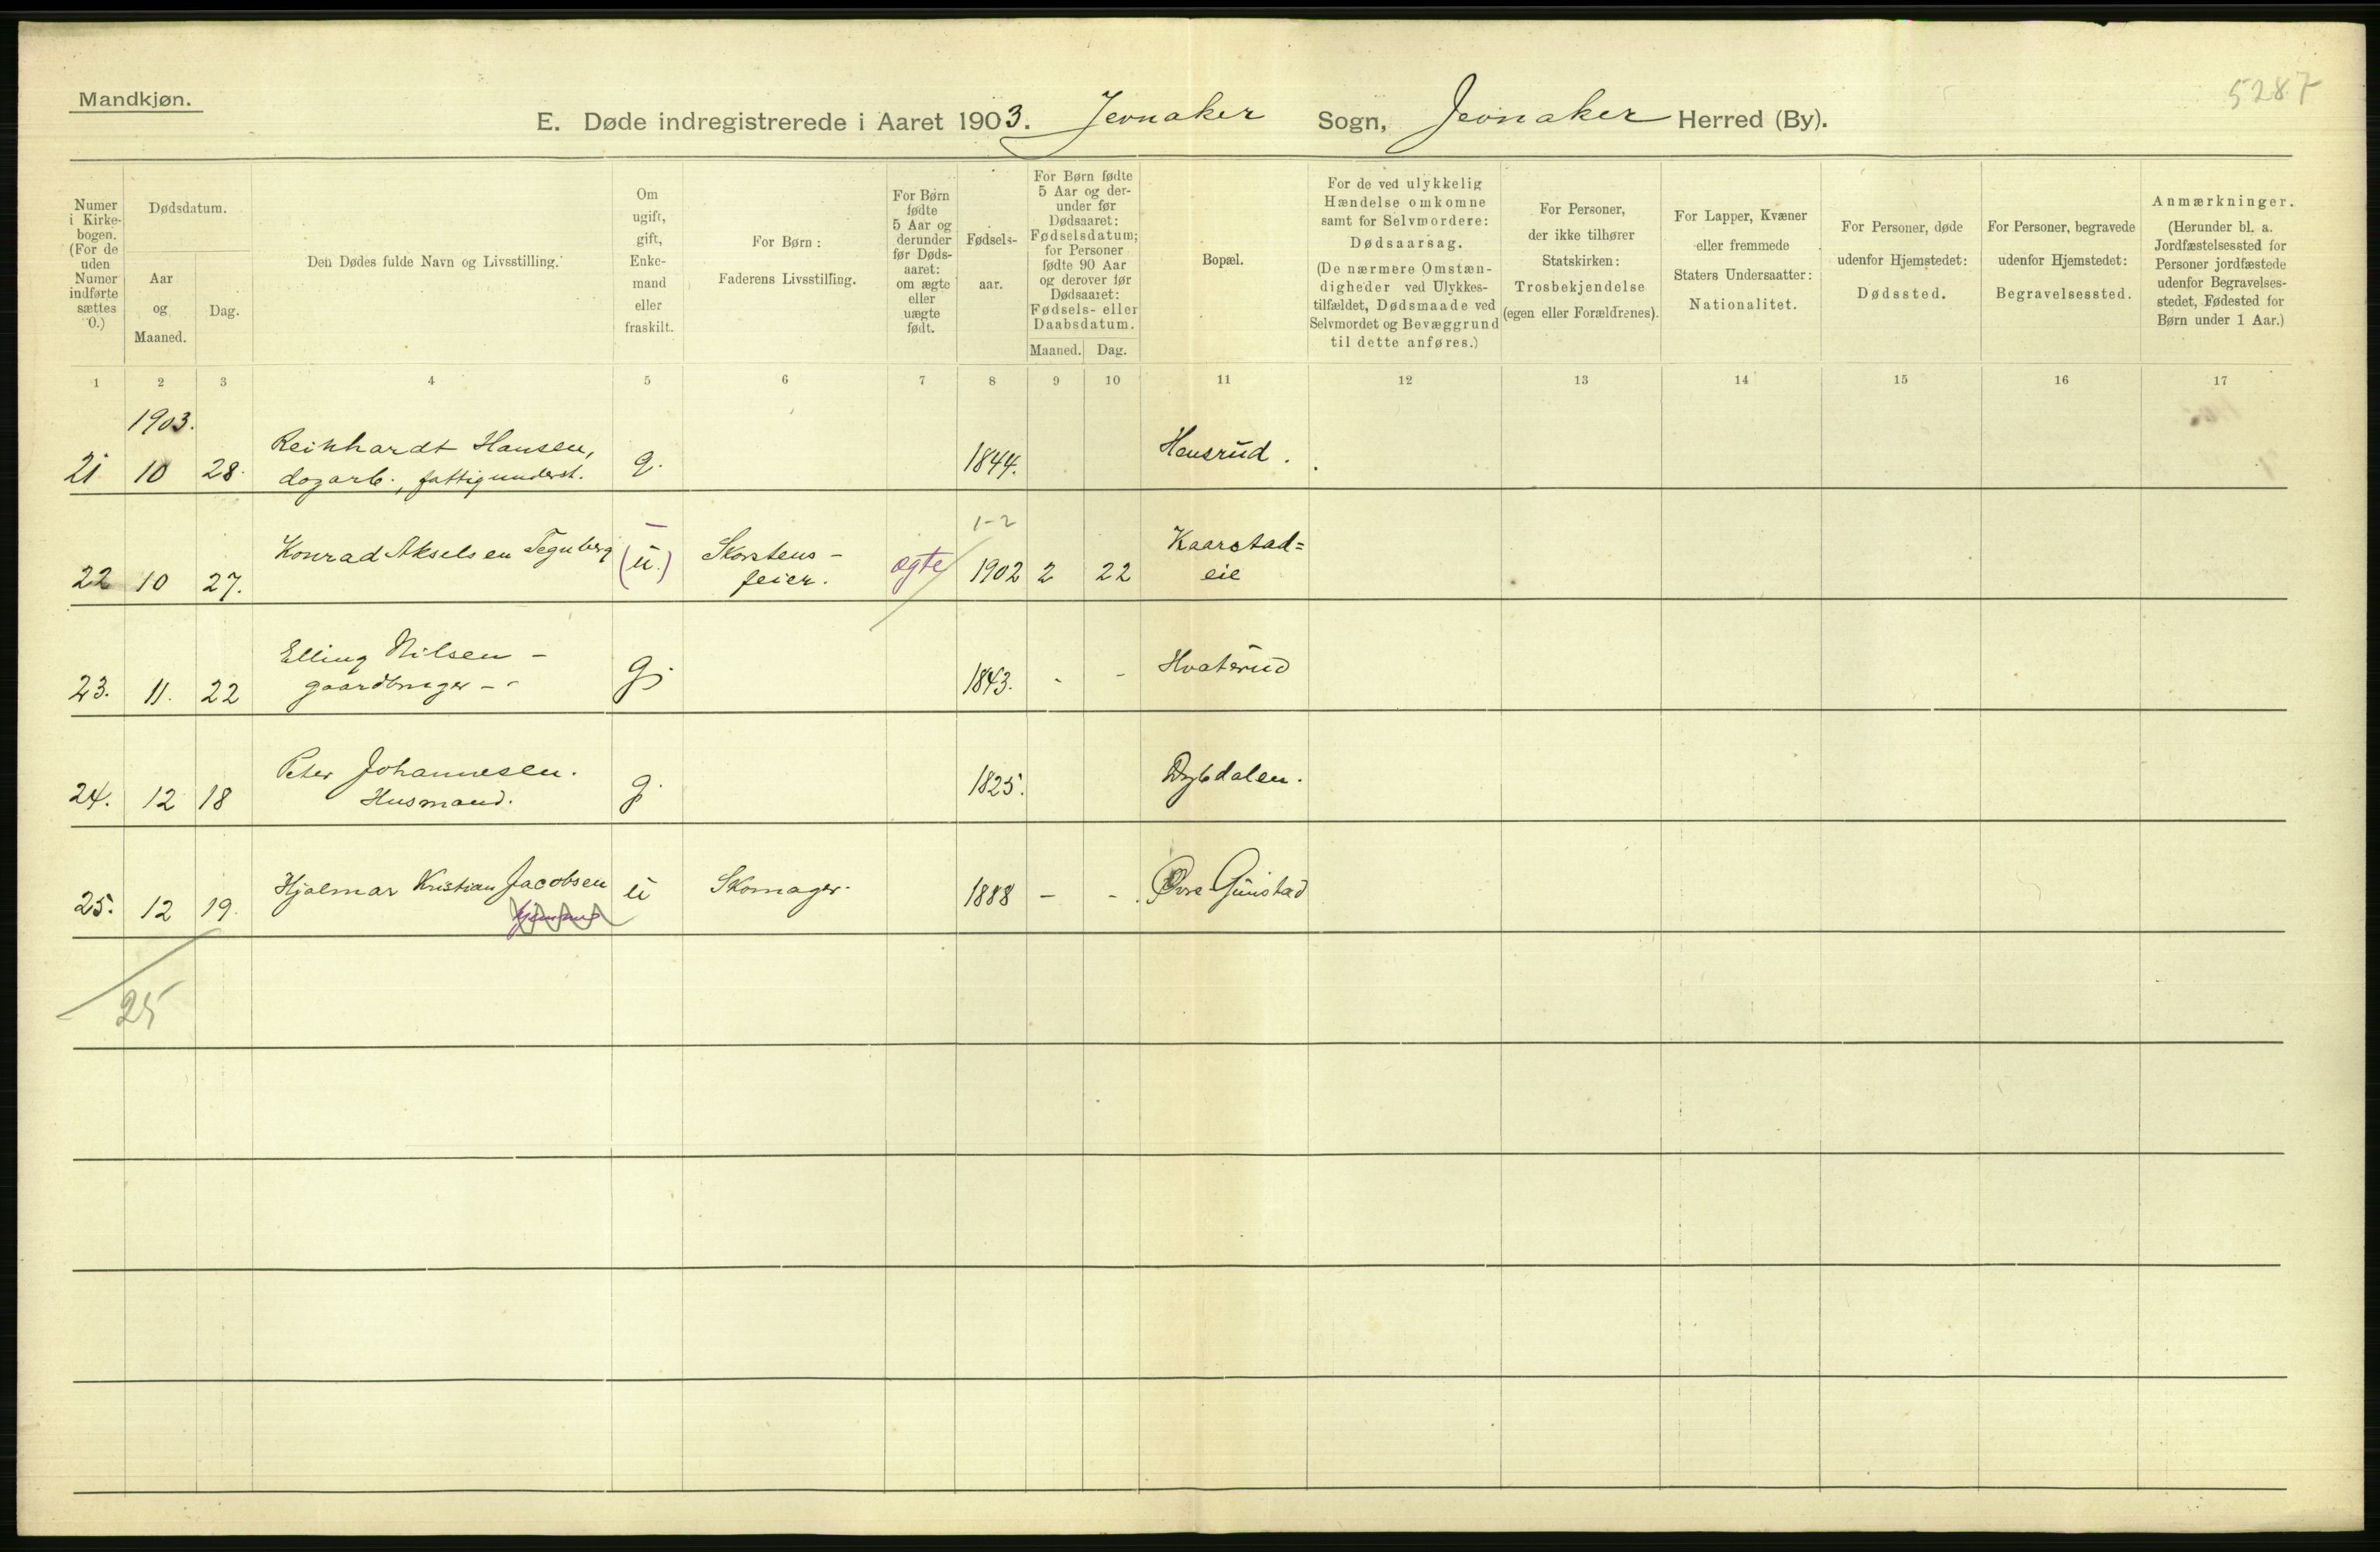 Mandkjøn.
5287
E. Døde indregistrerede i Aaret 1903. Jevnaker Sogn, Jevnaker Herred (By).
Numer i Kirke-bogen. (For de uden Numer indførte sættes 0.)
Dødsdatum.
Aar og Maaned.
Dag.
Den Dødes fulde Navn og Livsstilling.
Om ugift, gift, Enke-mand eller fraskilt.
For Børn: Faderens Livsstilling.
For Børn fødte 5 Aar og derunder før Døds-aaret: om ægte eller uægte født.
Fødsels-aar.
For Børn fødte 5 Aar og der-under før Dødsaaret: Fødselsdatum; for Personer fødte 90 Aar og derover før Dødsaaret: Fødsels- eller Daabsdatum.
Maaned. Dag.
Bopæl.
For de ved ulykkelig Hændelse omkomne samt for Selvmordere: Dødsaarsag. (De nærmere Omstæn-digheder ved Ulykkes-tilfældet, Dødsmaade ved Selvmordet og Bevæggrund til dette anføres.)
For Personer, der ikke tilhører Statskirken: Trosbekjendelse (egen eller Forældrenes).
For Lapper, Kvæner eller fremmede Staters Undersaatter: Nationalitet.
For Personer, døde udenfor Hjemstedet: Dødssted.
For Personer, begravede udenfor Hjemstedet: Begravelsessted.
Anmærkninger. (Herunder bl. a. Jordfæstelsessted for Personer jordfæstede udenfor Begravelses-stedet, Fødested for Børn under 1 Aar.)
1 2 3 4 5 6 7 8 9 10 11 12 13 14 15 16 17
1903.
21 10 28. Reinhardt Hansen, dagarb., fattigunderst. g. 1844. Hensrud.
1-2
22 10 27. Konrad Akselsen Tegnberg (u.) Skorstens-feier. ægte 1902 2 22 Kaarstad=eie
23. 11. 22 Elling Nilsen - gaardbruger - - g. 1843. - - Hvaterud
24. 12 18 Peter Johannesen. Husmand. g. 1825. Dybdalen.
25. 12 19. Hjalmar Kristian Jacobsen u Skomager. 1888 - - Øvre Guristad
25